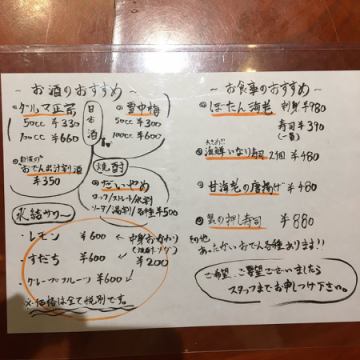 ~ お酒のおすすめ ~
ダルマ正宗
50cc ¥330
100cc ¥660
日本酒
雪中梅
50cc ¥300
100cc ¥600
おでん出汁割酒
¥350
焼酎
だいやめ
ロック/ストレート/水割
ソーダ/湯割/各種¥500
氷結サワー
・レモン ¥600
・すだち ¥600
・グレープフルーツ ¥600
中身おかわり
¥200
※価格は全て税別です。
~ お食事のおすすめ ~
ぼたん海老 刺身¥980
寿司¥390
(一貫)
海鮮いなり寿司 2個 ¥480
甘海老の唐揚げ ¥480
の押し寿司 ¥880
その他
あったかいおでん各種あります!!
ご希望、ご要望ございましたら
スタッフまでお申しつけ下さい。